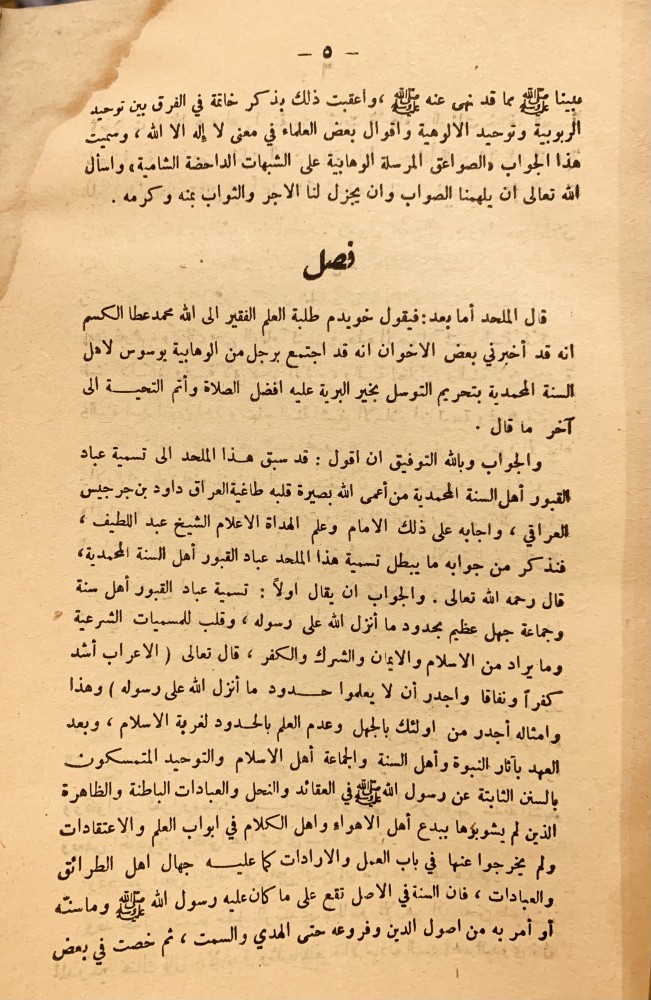 — ٥ —
مبينا ﷺ مما قد نهى عنه ﷺ ، وأعقبت ذلك بذكر خاتمة في الفرق بين توحيد
الربوبية وتوحيد الالوهية واقوال بعض العلماء في معنى لا إله الا الله ، وسميت
هذا الجواب «الصواعق المرسلة الوهابية على الشبهات الداحضة الشامية» واسأل
الله تعالى ان يلهمنا الصواب وان يجزل لنا الاجر والثواب بمنه وكرمه .
فصل
قال الملحد أما بعد: فيقول خويدم طلبة العلم الفقير الى الله محمد عطا الكسم
انه قد أخبرني بعض الاخوان انه قد اجتمع برجل من الوهابية يوسوس لاهل
السنة المحمدية بتحريم التوسل بخير البرية عليه افضل الصلاة وأتم التحيـــة الى
آخر ما قال .
والجواب وبالله التوفيق ان اقول : قد سبق هـذا الملحد الى تسمية عباد
القبور أهل السنة المحمدية من أعمى الله بصيرة قلبه طاغية العراق داود بن جرجيس
العراقي ، واجابه على ذلك الامام وعلم الهداة الاعلام الشيخ عبد اللطيف ،
فنذكر من جوابه ما يبطل تسمية هذا الملحد عباد القبور أهل السنة المحمدية،
قال رحمه الله تعالى . والجواب ان يقال اولاً : تسمية عباد القبور أهل سنة
وجماعة جهل عظيم بحدود ما أنزل الله على رسوله ، وقلب للمسميات الشرعية
وما يراد من الاسلام والايمان والشرك والكفر ، قال تعالى ( الاعراب أشد
كفراً ونفاقا واجدر أن لا يعلموا حـــدود ما أنزل الله على رسوله ) وهذا
وامثاله أجدر من اولئك بالجهل وعدم العلم بالحدود لغربة الاسلام ، وبعد
العهد بآثار النبوة وأهل السنة والجماعة أهل الاسلام والتوحيد المتمسكون
بالسنن الثابتة عن رسول الله ﷺ في العقائد والنحل والعبادات الباطنة والظاهرة
الذين لم يشوبوها ببدع أهل الاهواء واهل الكلام في ابواب العلم والاعتقادات
ولم يخرجوا عنها في باب العمل والارادات كما عليـــه جهال اهل الطرائق
والعبادات ، فان السنة في الاصل تقع على ما كان عليه رسول الله ﷺ وماسنّه
أو أمر به من اصول الدين وفروعه حتى الهدي والسمت ، ثم خصت في بعض